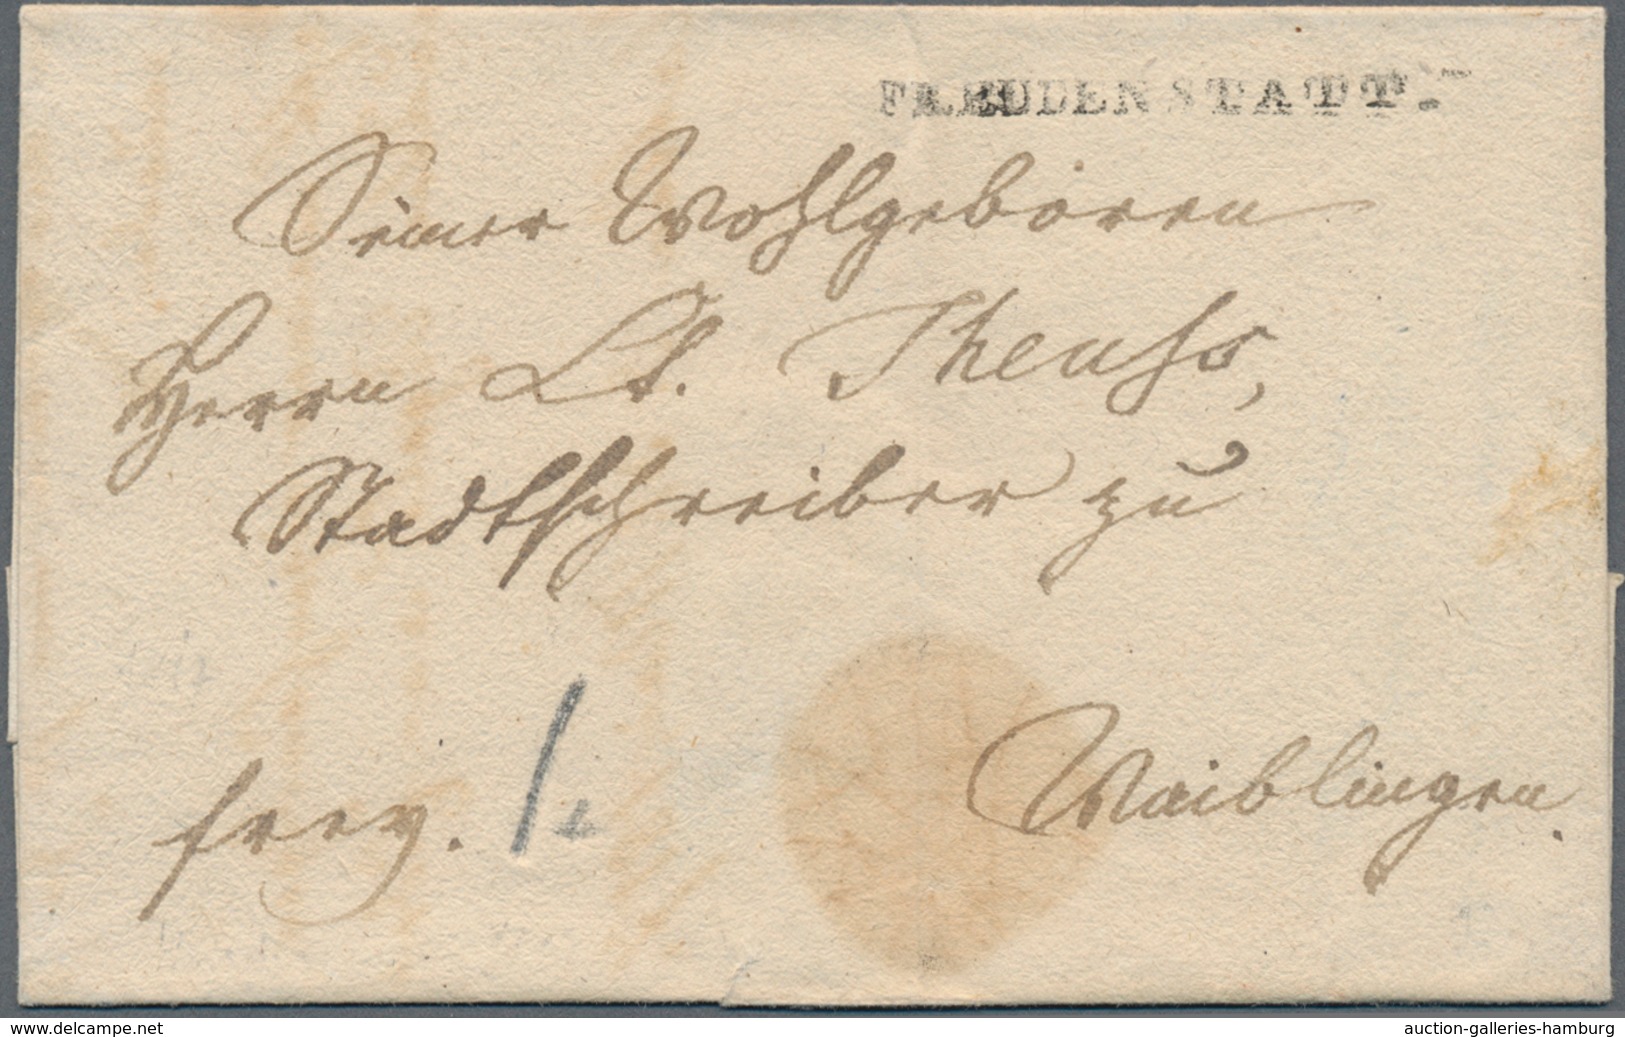 FREUDENSTATT.
Seiner Wohlgeboren
Herrn Lt. Theuss,
Stadtschreiber zu
frey.
Waiblingen.
www.delcampe.net
auction-galleries-hamburg